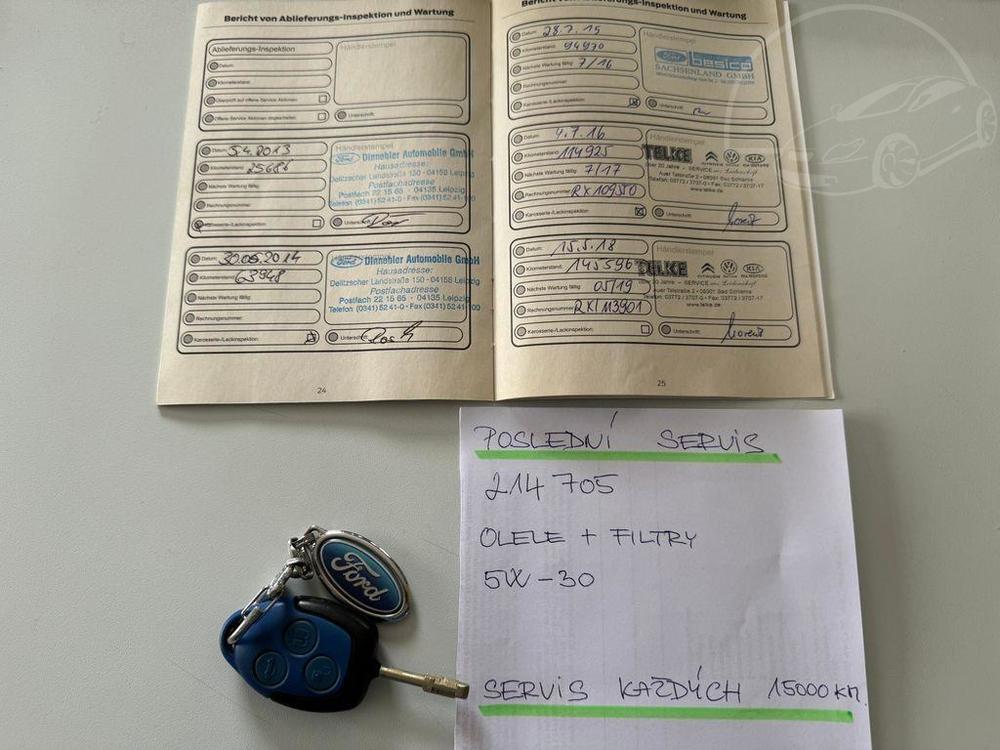 Bericht von Ablieferungs-Inspektion und Wartung
Ablieferungs-Inspektion
Händlerstempel
Datum:
Kilometerstand:
Überprüft auf offene Service Aktionen
Offene Service Aktionen durchgeführt
Unterschrift:
Datum: 5.4.2013
Kilometerstand: 25686
Nächste Wartung fällig:
Rechnungsnummer:
Karosserie-/Lackinspektion:
Händlerstempel
Ford Dinnebier Automobile GmbH
Hausadresse:
Delitzscher Landstraße 150 - 04158 Leipzig
Postfachadresse
Postfach 22 15 65 - 04135 Leipzig
Telefon (0341) 52 41-0 · Fax (0341) 52 41-100
Unterschrift:
Datum: 30.05.2014
Kilometerstand: 63948
Nächste Wartung fällig:
Rechnungsnummer:
Karosserie-/Lackinspektion:
Ford Dinnebier Automobile GmbH
Hausadresse:
Delitzscher Landstraße 150 - 04158 Leipzig
Postfachadresse
Postfach 22 15 65 - 04135 Leipzig
Telefon (0341) 52 41-0 · Fax (0341) 52 41-100
Unterschrift:
24
Bericht von Ablieferungs-Inspektion und Wartung
Datum: 28.7.15
Kilometerstand: 94970
Nächste Wartung fällig: 7/16
Rechnungsnummer:
Karosserie-/Lackinspektion:
Händlerstempel
Ford besico
SACHSENLAND GMBH
Unterschrift:
Datum: 4.7.16
Kilometerstand: 114925
Nächste Wartung fällig: 7/17
Rechnungsnummer: RX10950
Karosserie-/Lackinspektion:
Händlerstempel
TELKE
KIA
Auer Talstraße 2 - 08301 Bad Schlema
Telefon: 03772 / 3707-0 · Fax: 03772 / 3707-17
www.telke.de
Unterschrift:
Datum: 15.5.18
Kilometerstand: 145596
Nächste Wartung fällig: 05/19
Rechnungsnummer: RX113901
Karosserie-/Lackinspektion:
Händlerstempel
TELKE
KIA
Auer Talstraße 2 - 08301 Bad Schlema
Telefon: 03772 / 3707-0 · Fax: 03772 / 3707-17
www.telke.de
Unterschrift:
25
POSLEDNÍ SERVIS
214 705
OLELE + FILTRY
5W-30
SERVIS KAŽDÝCH 15000 km.
Ford